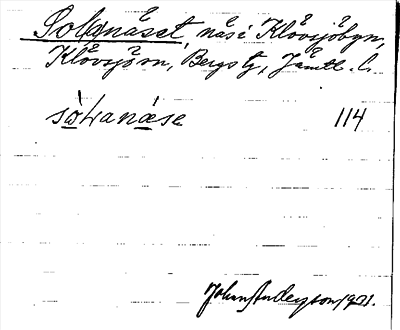 Solanäset, näs i Klövsjöbyn,
Klövsjö sn, Bergs tg, Jämtl. l.
sòLanǽse 114
Johan Anderson 1921.